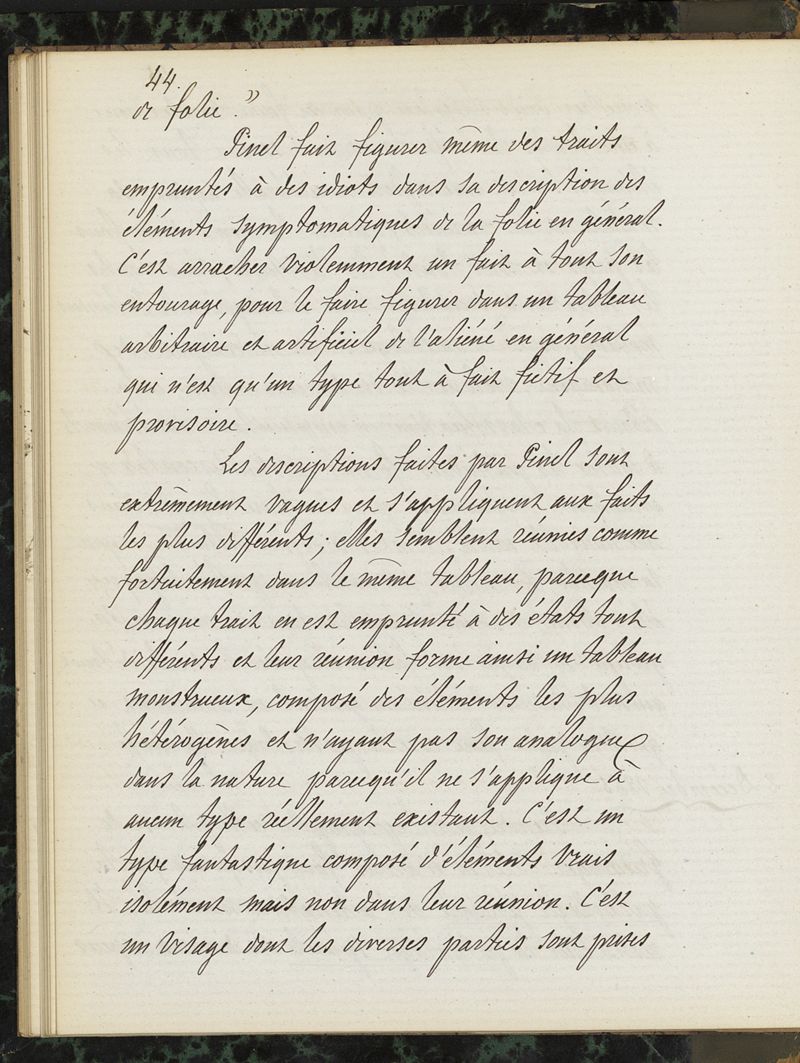 44.
de folie."
Pinel fait figurer même des traits
empruntés à des idiots dans sa description des
éléments symptomatiques de la folie en général.
C'est arracher violemment un fait à tout son
entourage, pour le faire figurer dans un tableau
arbitraire et artificiel de l'aliéné en général
qui n'est qu'un type tout à fait fictif et
provisoire.
Les descriptions faites par Pinel sont
extrêmement vagues et s'appliquent aux faits
les plus différents; elles semblent réunies comme
fortuitement dans le même tableau, parceque
chaque trait en est emprunté à des états tout
différents et leur réunion forme ainsi un tableau
monstrueux, composé des éléments les plus
hétérogènes et n'ayant pas son analogue
dans la nature parcequ'il ne s'applique à
aucun type réellement existant. C'est un
type fantastique composé d'éléments vrais
isolément mais non dans leur réunion. C'est
un visage dont les diverses parties sont prises